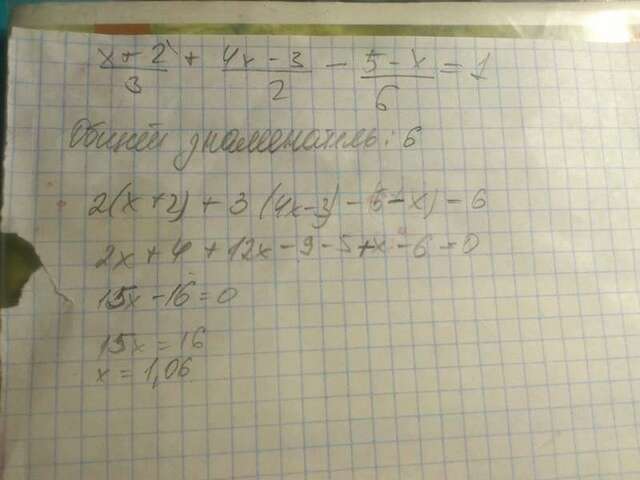 x+2/3 + 4x-3/2 - 5-x/6 = 1
Общий знаменатель: 6
2(x+2) + 3(4x-3) - (5-x) = 6
2x+4+12x-9-5+x-6=0
15x-16=0
15x=16
x=1,06